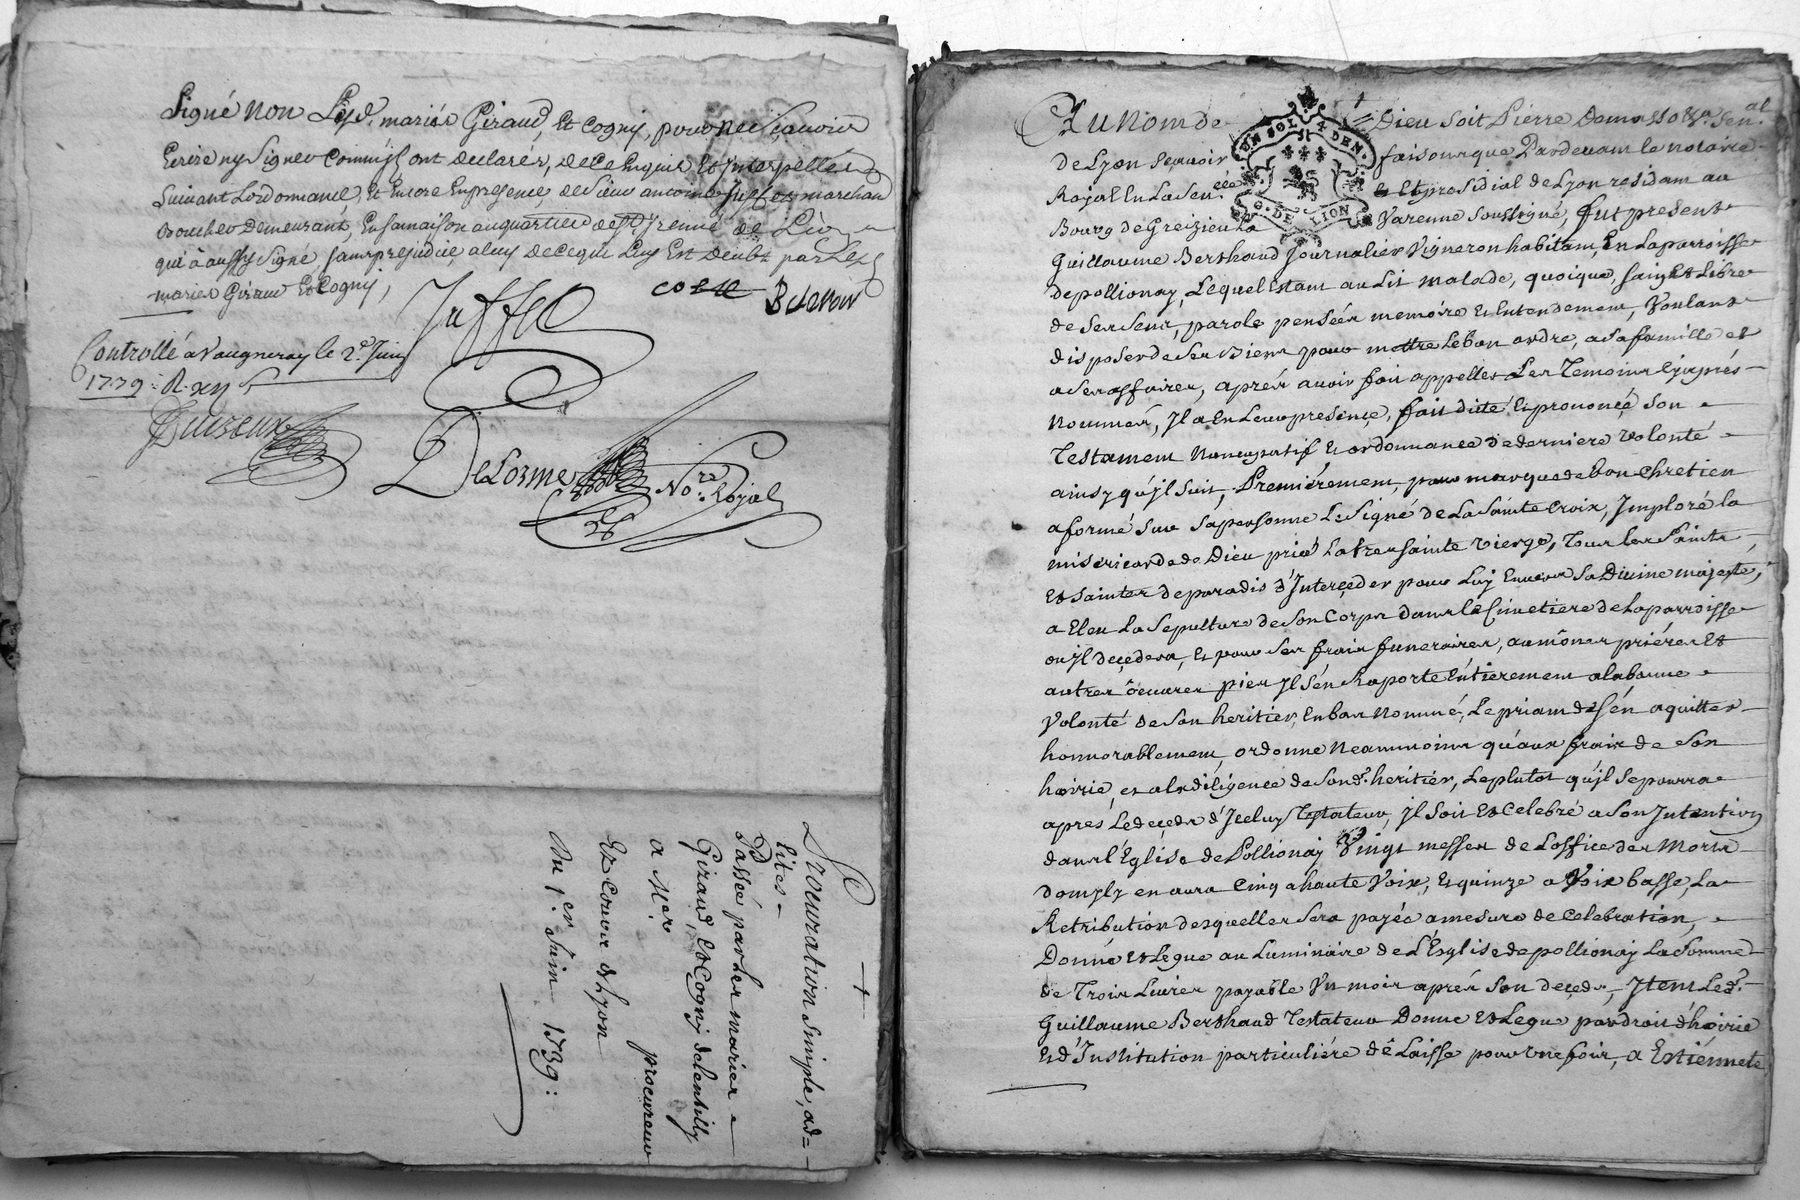 Signé non Lesd. mariés Giraud, et Cogny, pour ne sçavoir
Ecrire ny Signer comm'jls ont declarés, de ce Enquis Et Interpellés
Suivant Lordonnance, et Encore En presence, de Sieur antoine Juffet marchan
Boucher Demeurant, En Sa maison au quartier de St Irenné de Lion
qui à aussy Signé, sans prejudice a luy de ce qui Luy Est Deubt par Lesd
mariés Giraud Et Cogny,
Juffet
Controllé a Vaugneray le 2e. Juin
1739: R. xij s
DeLorme
No.re Royal
+
Procuration Simple, ad=
Lites =
Passée par Les mariés =
Giraud, Et Cogny de Lentilly
a Mer. procureur
Ez Cours de Lyon
Du 1er. Juin 1739:
1
UN SOL 4 DEN.
G. DE LION
Au Nom de = Dieu Soit Pierre Senal
de Lyon Sçavoir faisons que Pardevant le notaire
Royal En La Senée Et presidial de Lyon residam au
Bourg de Greizieu La Varenne Soussigné, fut present
Guillaume Berthaud Journalier Vigneron habitam, En La parroisse
de pollionay, Lequel Estam au Lit malade, quoique, sain Et Libre
de Ses Sens, parole pensées memoire Et Entendement, Voulant
disposer de Ses Biens pour mettre Le bon ordre, a Sa famille et
a Ses affaires, aprés avoir fait appeller Les Temoins Cy aprés
Nommés, Il a En Leur presence, fait dicté Et prononcé Son
Testament Nuncupatif Et ordonnance de derniere Volonté
ainsy qu'jl Suit, Premiérement, pour marque de bon Chretien
a formé Sur Sa personne Le Signé de La Sainte Croix, Imploré la
misericorde de Dieu prié La tres Sainte Vierge, Tous Les Saints
Et Saintes de paradis d'Interçeder pour Luy Envers Sa Divine majesté,
a Eleu La Sepulture de Son Corps dans le Cimetiere de La parroisse
ou jl deçedera, Et pour Ses frais funeraires, aumônes priéres Et
autres oeuvres pies Il S'én Raporte Entierement a la bonne
Volonté de Son heritier, En bas Nommé, Le priam de S'én aquitter
honnorablement, ordonne Neammoins qu'aux frais de Son
hoirie, et a la diligence de Sond. heritier, Le plutot qu'jl Se pourra
apres Le deçeds d'Jceluy Testateur, jl Soit Et Celebré a Son Intention
dans l'Eglise de Pollionay Vingt messes de L'office des Morts
dom jl y en aura Cinq a haute Voix, Et quinze a Voix basse, La
Retribution desquelles Sera payée a mesure de Celebration,
Donne Et Légue au Luminaire de L'Eglise de pollionay La Somme
de Trois Livres payable Un mois aprés Son deçeds, Item Led.
Guillaume Berthaud Testateur Donne Et Legue par droit d'hoirie
Et d'Institution particuliére dé Laisse pour Une fois, a Estiénnete